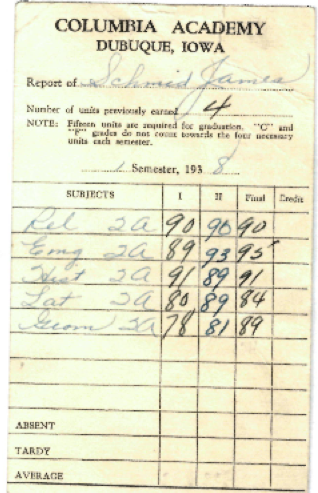 COLUMBIA ACADEMY
DUBUQUE, IOWA
Report of Schmid James
Number of units previously earned 4
NOTE: Fifteen units are required for graduation. "C" and
"F" grades do not count towards the four necessary
units each semester.
1 Semester, 193 8
SUBJECTS I II Final Credit
Rel 2A 90 90 90
Eng 2A 89 93 95
Hist 2A 91 89 91
Lat 2A 80 89 84
Geom 2A 78 81 89
ABSENT
TARDY
AVERAGE